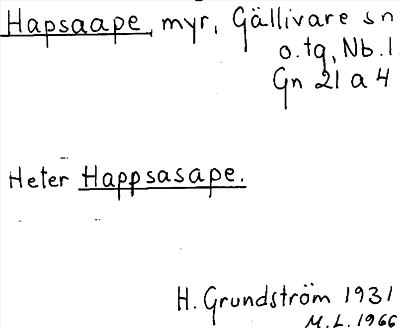 Hapsaape, myr, Gällivare sn
o. tg, Nb. l.
Gn 21 a 4
Heter Happsasape.
H. Grundström 1931
M.L. 1966